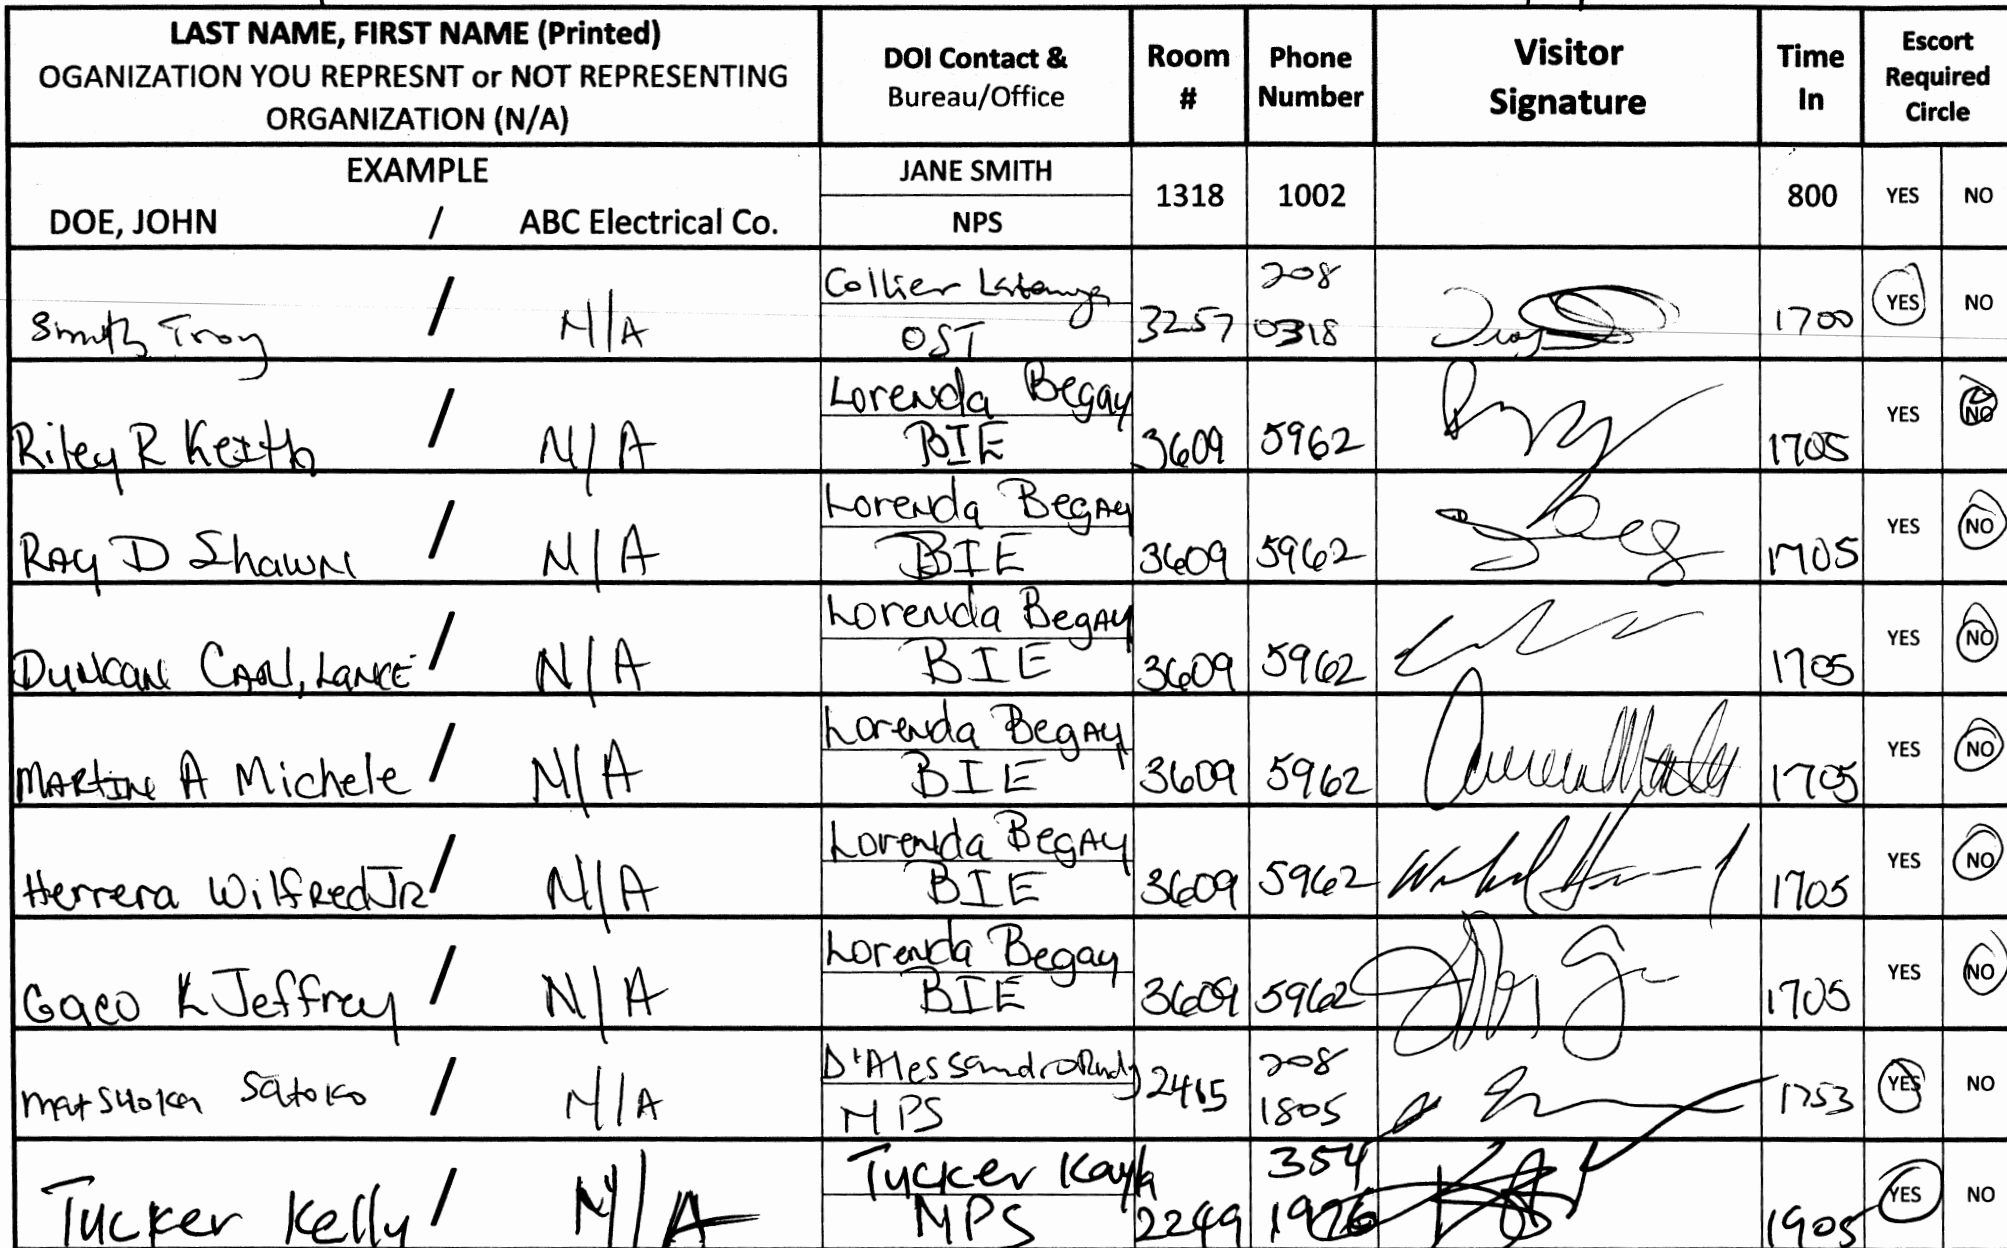 LAST NAME, FIRST NAME (Printed)
OGANIZATION YOU REPRESNT or NOT REPRESENTING
ORGANIZATION (N/A)
DOI Contact &
Bureau/Office
Room
#
Phone
Number
Visitor
Signature
Time
In
Escort
Required
Circle
EXAMPLE
DOE, JOHN / ABC Electrical Co.
JANE SMITH
NPS
1318 1002 800 YES NO
Smith Troy / N/A
Collier
OST
3257
208
0318
1700 YES NO
Riley R Keith / N/A
Lorenda Begay
BIE
3609 5962 1705 YES NO
RAy D Shawn / N/A
Lorenda BegAy
BIE
3609 5962 1705 YES NO
DUNCAN CARL, LANCE / N/A
Lorenda BegAy
BIE
3609 5962 1705 YES NO
MARtINE A Michele / N/A
Lorenda BegAy
BIE
3609 5962 1705 YES NO
Herrera WilfRed JR / N/A
Lorenda BegAy
BIE
3609 5962 1705 YES NO
Gaco K Jeffrey / N/A
Lorenda Begay
BIE
3609 5962 1705 YES NO
Satoko / N/A
D'Alessandro Rudy
NPS
2415
208
1805
1753 YES NO
Tucker Kelly / N/A
Tucker Kayla
NPS
2249
354
1976
1905 YES NO